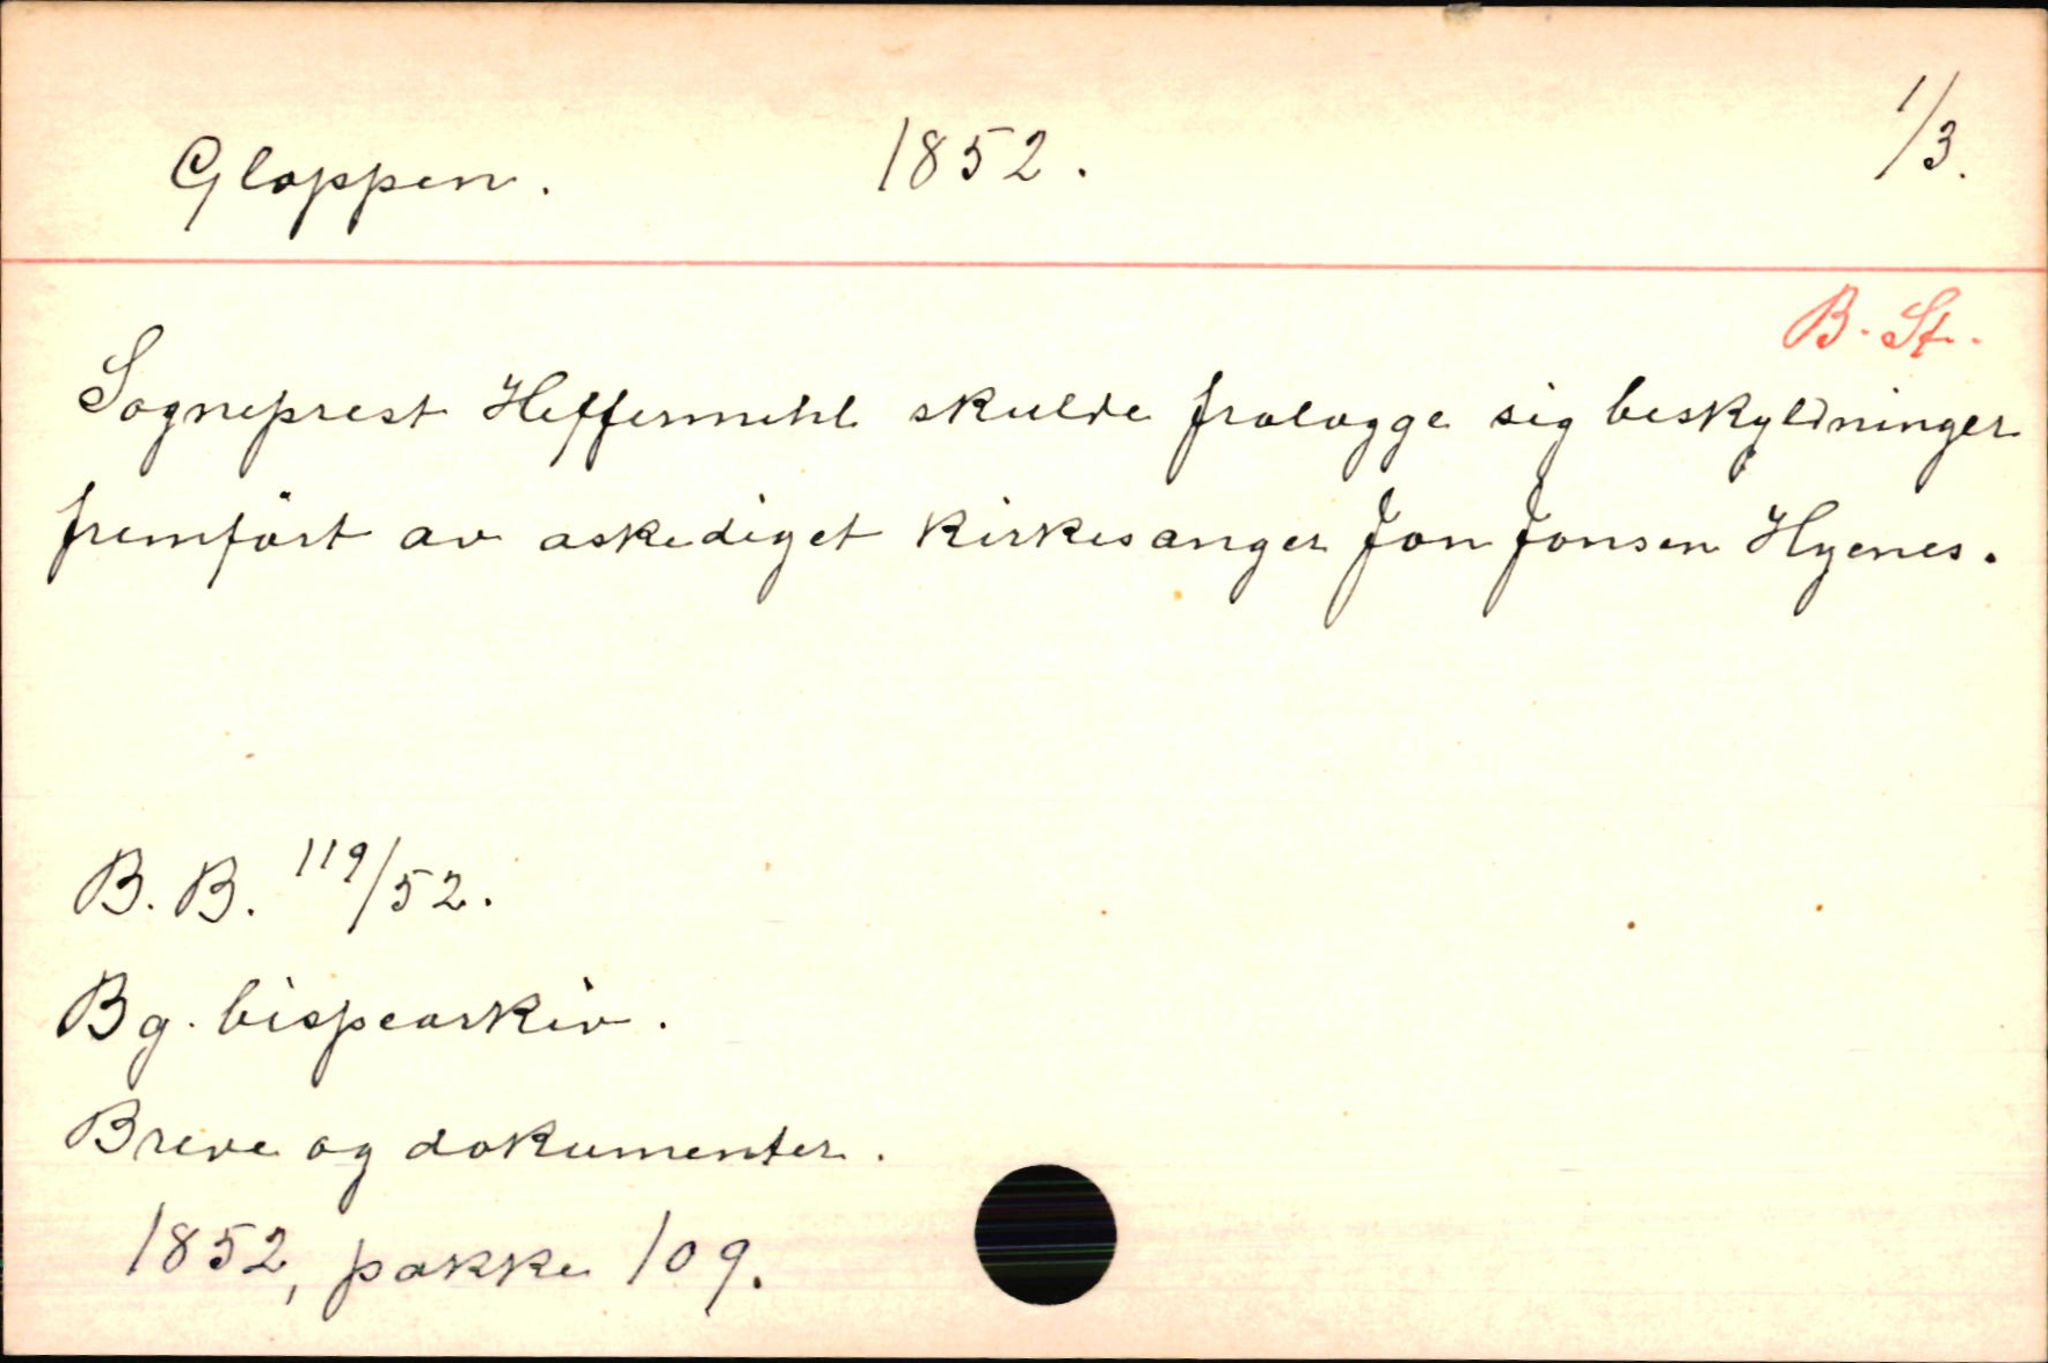 Gloppen. 1852. 1/3.
B. St.
Sogneprest Heffermehl skulde fralægge sig beskyldninger
fremført av avskediget kirkesanger Jon Jonsen Hyenes.
B. B. 119/52.
Bg. bispearkiv.
Breve og dokumenter.
1852, pakke 109.